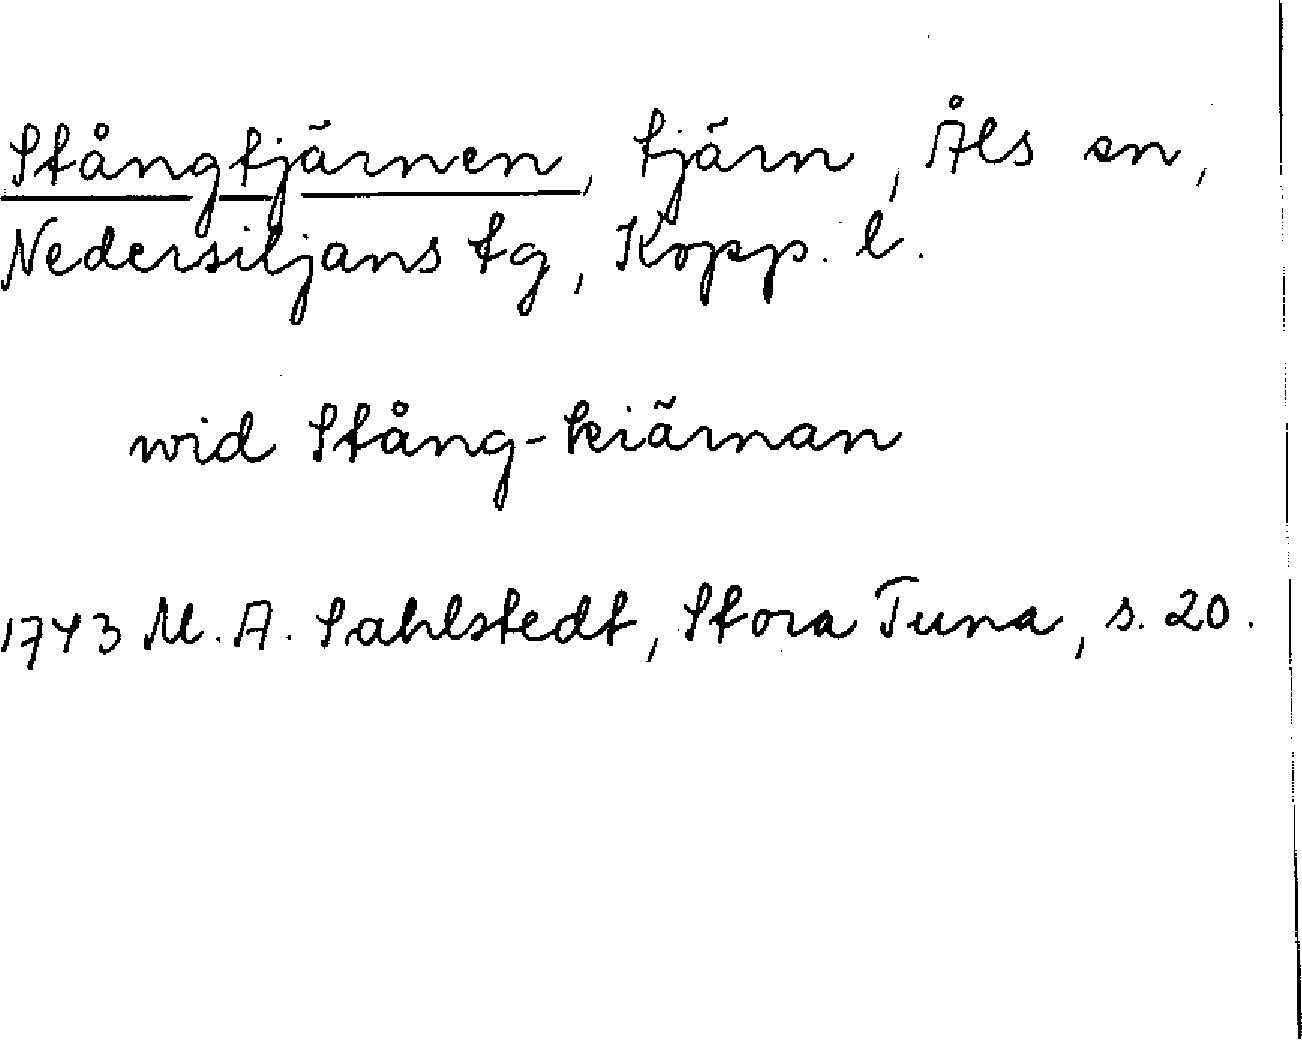 Stångtjärnen, tjärn, Åls sn,
Nedersiljans tg, Kopp. l.
wid Stång-kiärnan
1743 M. A. Sahlstedt, Stora Tuna, s. 20.